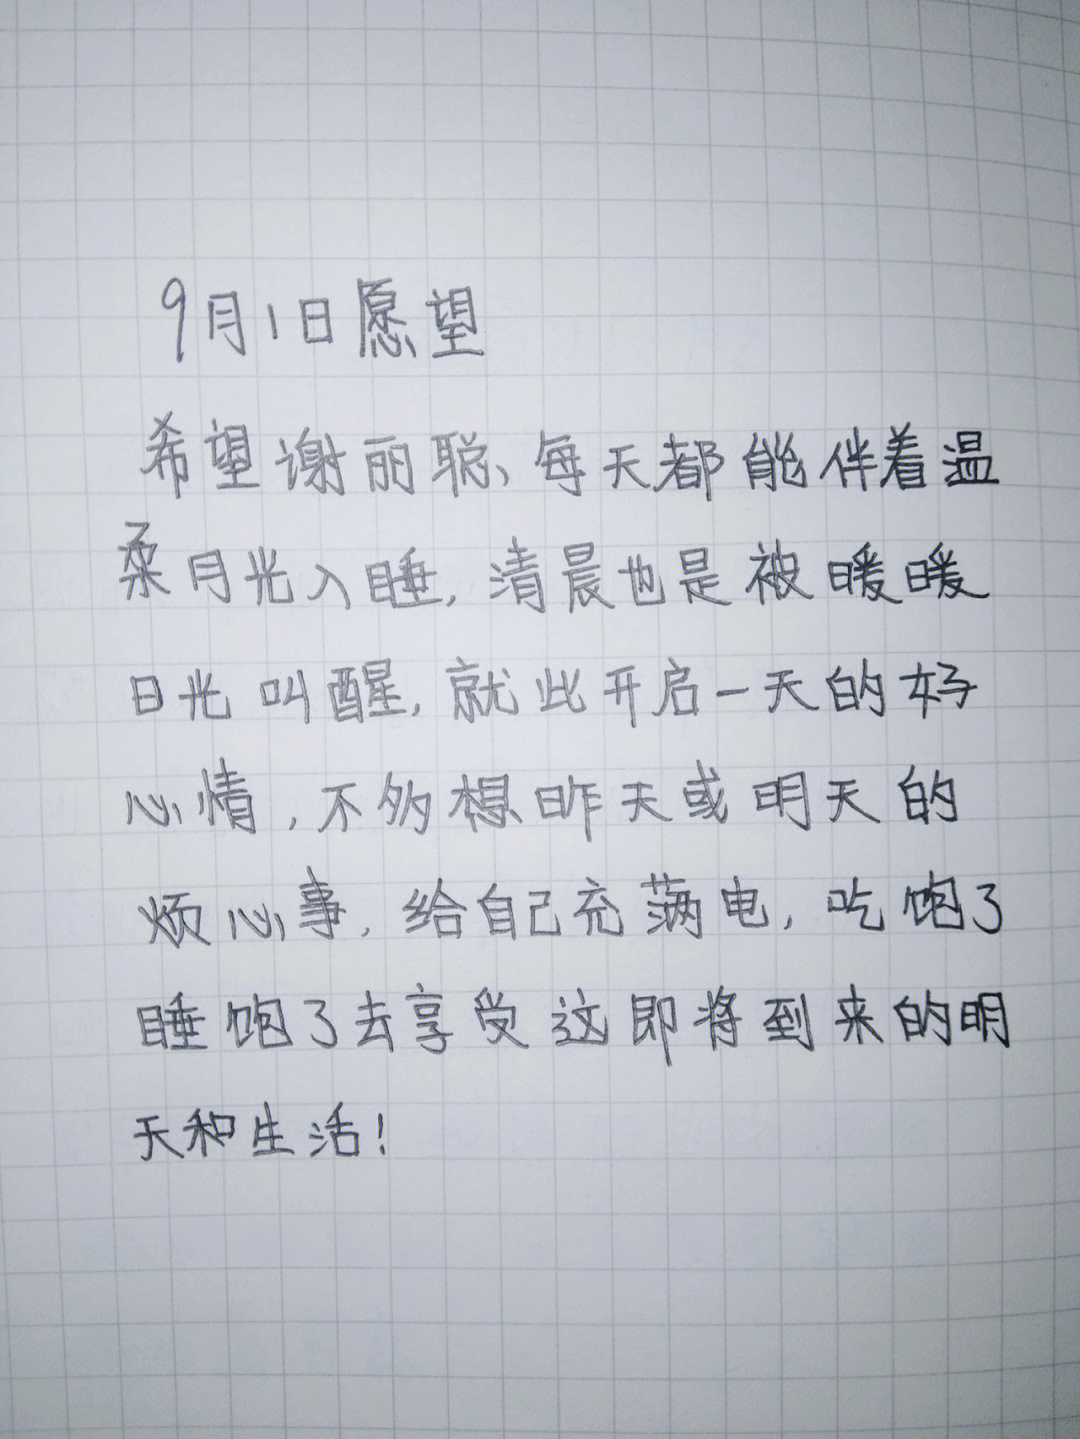 9月1日愿望
希望谢丽聪、每天都能伴着温
柔月光入睡,清晨也是被暖暖
日光叫醒,就此开启一天的好
心情,不多想昨天或明天的
烦心事,给自己充满电,吃饱了
睡饱了去享受这即将到来的明
天和生活!